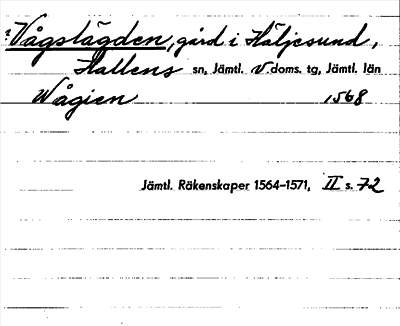 ? Vågslägden, gård i Häljesund,
Hallens sn, Jämtl. V doms. tg, Jämtl. län
Wågien 1568
Jämtl. Räkenskaper 1564-1571, II s. 72